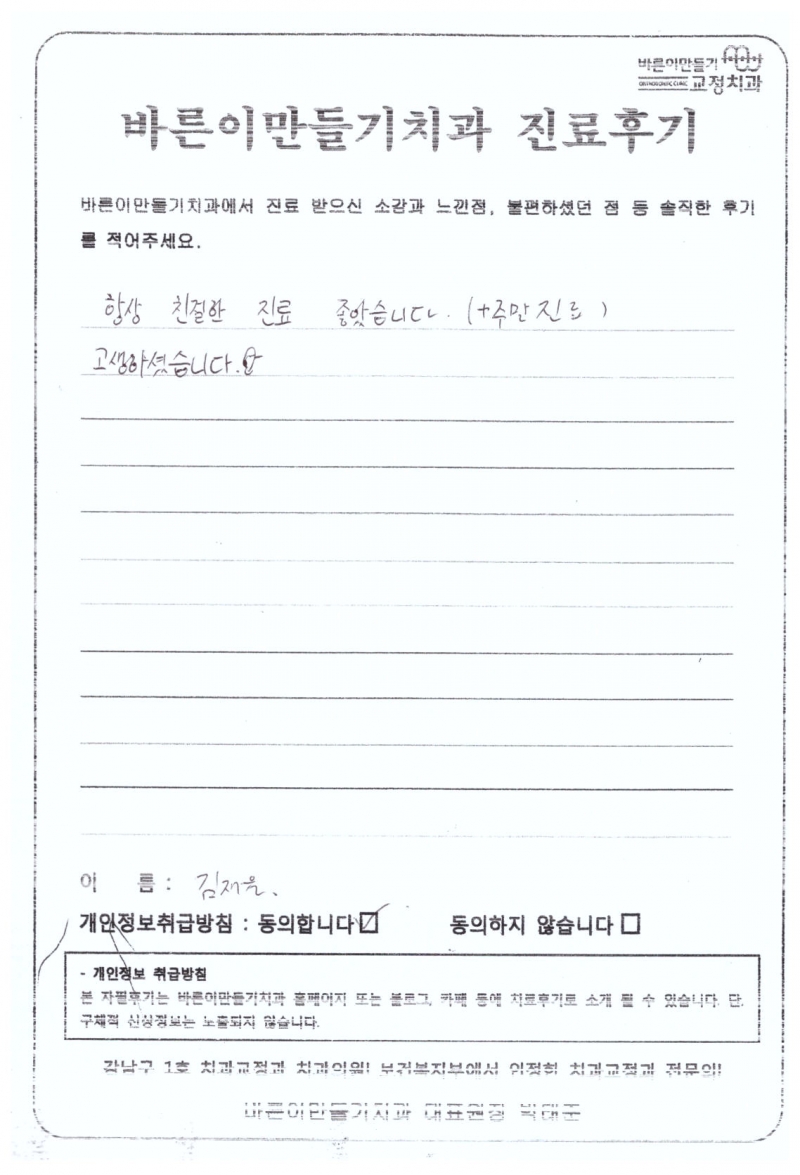 바른이만들기
ORTHODONTIC CLINIC 교정치과
바른이만들기치과 진료후기
바른이만들기치과에서 진료 받으신 소감과 느낀점, 불편하셨던 점 등 솔직한 후기
를 적어주세요.
항상 친절한 진료 좋았습니다. (+주말진료)
고생하셨습니다.
이 름 : 김재윤.
개인정보취급방침 : 동의합니다☑ 동의하지 않습니다☐
- 개인정보 취급방침
본 자필후기는 바른이만들기치과 홈페이지 또는 블로그, 카페 등에 치료후기로 소개 될 수 있습니다. 단,
구체적 신상정보는 노출되지 않습니다.
강남구 1호 치과교정과 치과의원! 보건복지부에서 인정한 치과교정과 전문의!
바른이만들기치과 대표원장